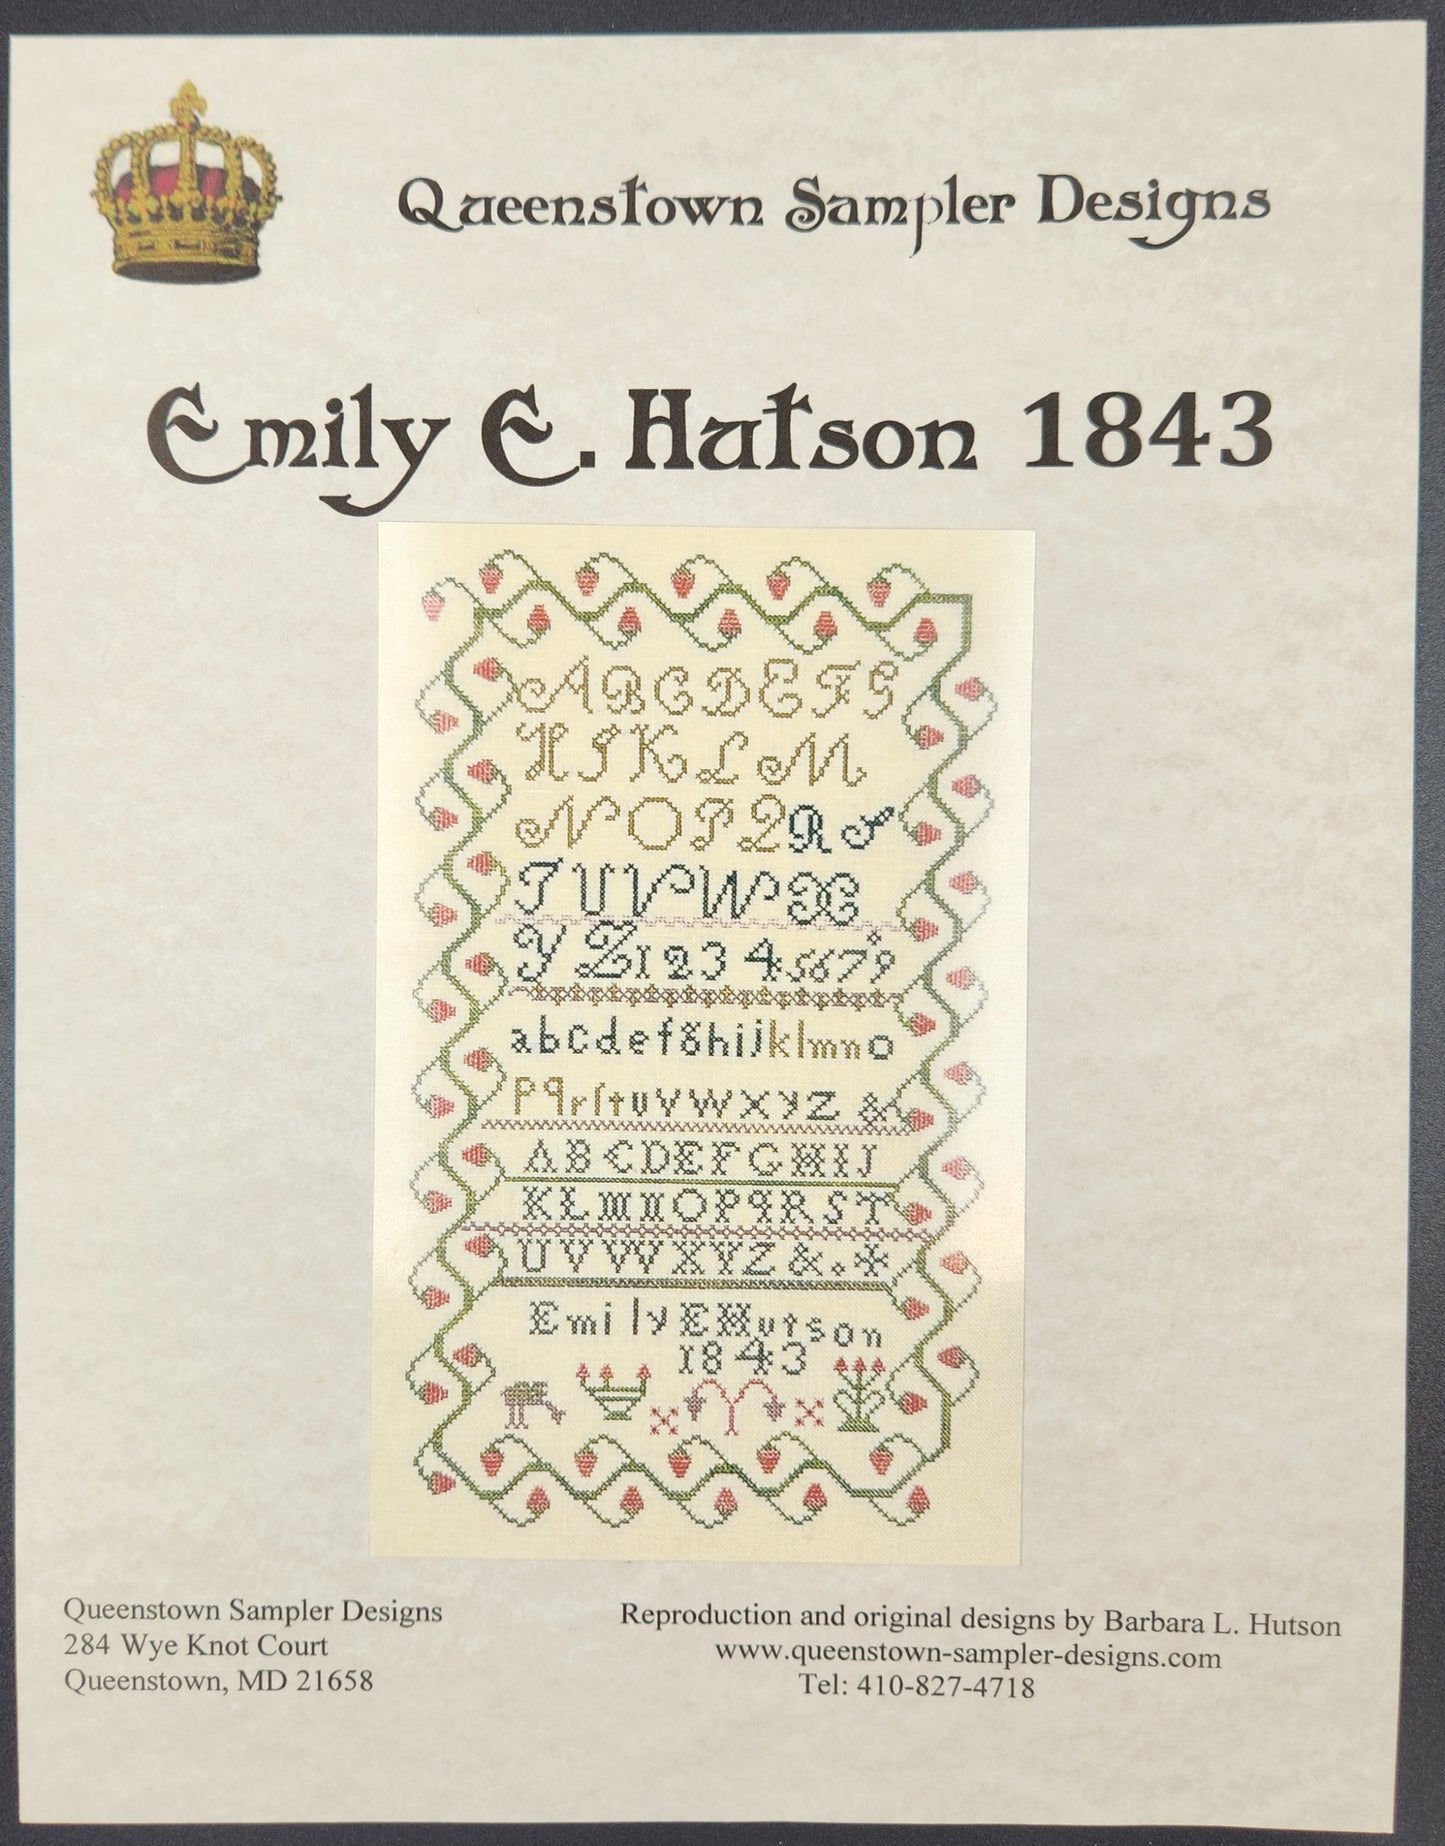 Queenstown Sampler Designs
Emily E. Hutson 1843
A B C D E F G
H I K L M
N O P Q R S
T U V W X
Y Z 1 2 3 4 5 6 7 8 9
a b c d e f g h i j k l m n o
p q r ſ t u v w x y z &
A B C D E F G H I J
K L M N O P Q R S T
U V W X Y Z & . *
Emily E Hutson
1843
Queenstown Sampler Designs
284 Wye Knot Court
Queenstown, MD 21658
Reproduction and original designs by Barbara L. Hutson
www.queenstown-sampler-designs.com
Tel: 410-827-4718